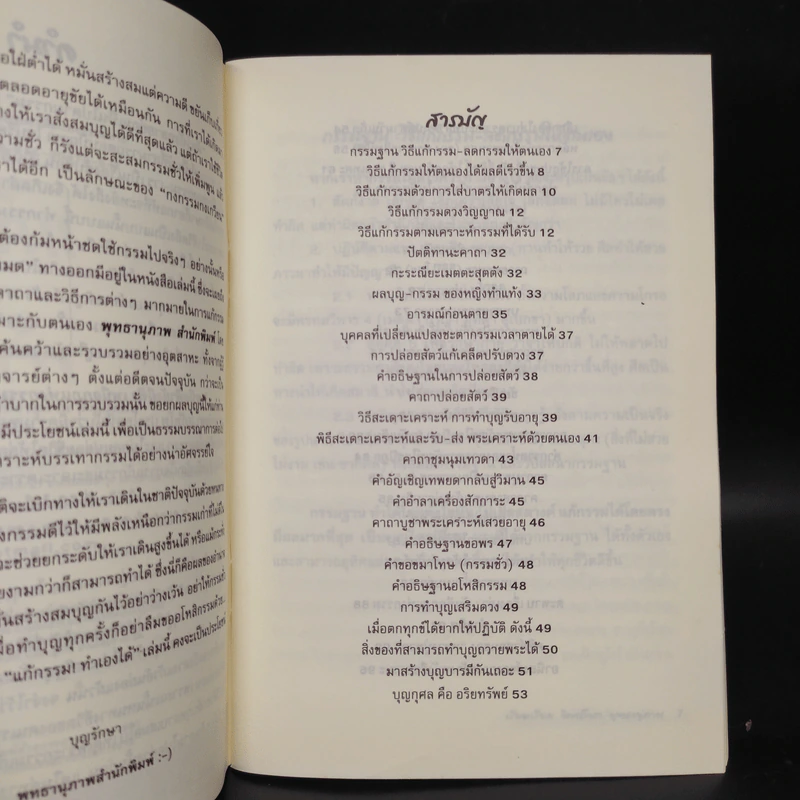 อใฝ่ต่ำได้ หมั่นสร้างสมแต่ความดี
ตลอดอายุขัยได้เหมือนกัน การที่เราได้
างให้เราสั่งสมบุญได้ดีที่สุดแล้ว แต่ถ้าเราใช้
วามชั่ว ก็รังแต่จะสะสมกรรมชั่วให้เพิ่มพูน
าได้อีก เป็นลักษณะของ “กงกรรมกงเกวียน”
ต้องก้มหน้าชดใช้กรรมไปจริงๆ อย่างนั้นหรือ
มด” ทางออกมีอยู่ในหนังสือเล่มนี้
คาถาและวิธีการต่างๆ มากมายในการแก้กรรม
มาะกับตนเอง พุทธานุภาพ สำนักพิมพ์
ค้นคว้าและรวบรวมอย่างอุตสาหะ
จารย์ต่างๆ ตั้งแต่อดีตจนปัจจุบัน กว่าจะ
ำบากในการรวบรวมนั้น ขอยกผลบุญนี้ให้แก่ท่าน
มีประโยชน์เล่มนี้ เพื่อเป็นธรรมบรรณาการ
ราะห์บรรเทากรรมได้อย่างน่าอัศจรรย์ใจ
ติจะเบิกทางให้เราเดินในชาติปัจจุบันด้วย
งกรรมดีไว้ให้มีพลังเหนือกว่ากรรมเก่าที่
จะช่วยยกระดับให้เราเดินสูงขึ้นได้
ยงามกว่าก็สามารถทำได้ ซึ่งนี่ก็คือผลของ
นสร้างสมบุญกันไว้อย่าว่างเว้น
มื่อทำบุญทุกครั้งก็อย่าลืมขออโหสิกรรมด้วย
“แก้กรรม! ทำเองได้” เล่มนี้ คงจะเป็นประโยชน์
บุญรักษา
พุทธานุภาพสำนักพิมพ์ :-)
สารบัญ
กรรมฐาน วิธีแก้กรรม-ลดกรรมให้ตนเอง 7
วิธีแก้กรรมให้ตนเองได้ผลดีเร็วขึ้น 8
วิธีแก้กรรมด้วยการใส่บาตรให้เกิดผล 10
วิธีแก้กรรมดวงวิญญาณ 12
วิธีแก้กรรมตามเคราะห์กรรมที่ได้รับ 12
ปัตติทานะคาถา 32
กะระณียะเมตตะสุตตัง 32
ผลบุญ-กรรม ของหญิงทำแท้ง 33
อารมณ์ก่อนตาย 35
บุคคลที่เปลี่ยนแปลงชะตากรรมเวลาตายได้ 37
การปล่อยสัตว์แก้เคล็ดปรับดวง 37
คำอธิษฐานในการปล่อยสัตว์ 38
คาถาปล่อยสัตว์ 39
วิธีสะเดาะเคราะห์ การทำบุญรับอายุ 39
พิธีสะเดาะเคราะห์และรับ-ส่ง พระเคราะห์ด้วยตนเอง 41
คาถาชุมนุมเทวดา 43
คำอัญเชิญเทพยดากลับสู่วิมาน 45
คำอำลาเครื่องสักการะ 45
คาถาบูชาพระเคราะห์เสวยอายุ 46
คำอธิษฐานขอพร 47
คำขอขมาโทษ (กรรมชั่ว) 48
คำอธิษฐานอโหสิกรรม 48
การทำบุญเสริมดวง 49
เมื่อตกทุกข์ได้ยากให้ปฏิบัติ ดังนี้ 49
สิ่งของที่สามารถทำบุญถวายพระได้ 50
มาสร้างบุญบารมีกันเถอะ 51
บุญกุศล คือ อริยทรัพย์ 53